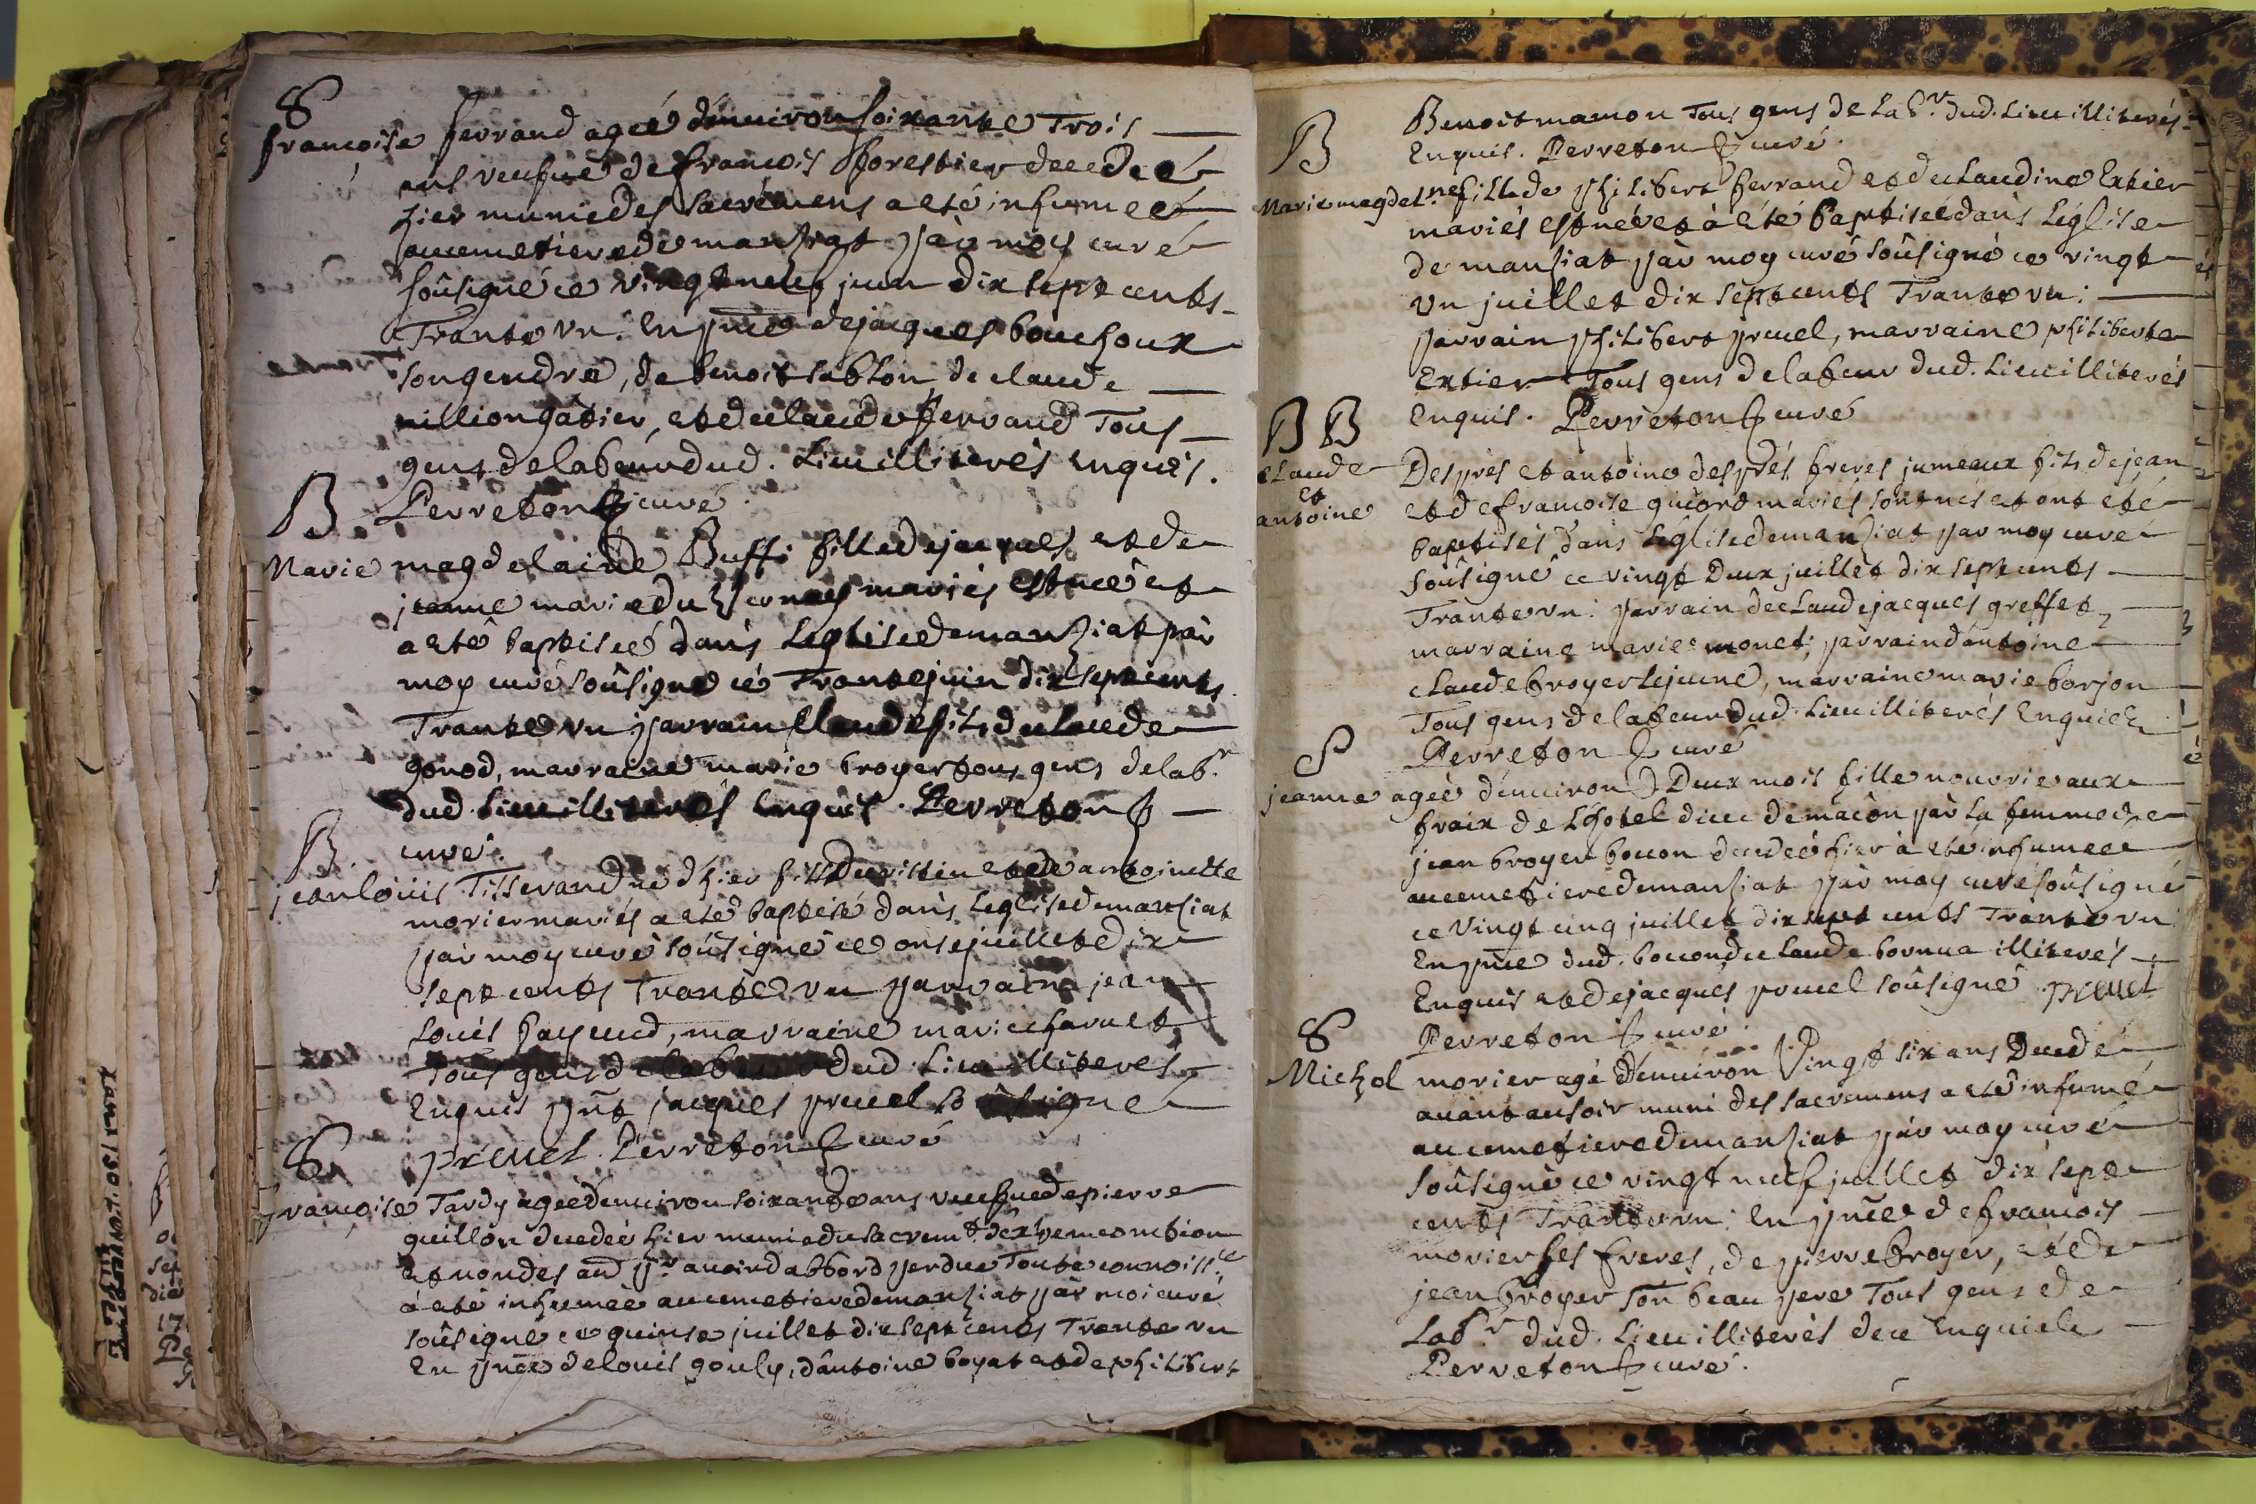 S
francoise ferrand ageé dénuiron soixante Trois
ans veufue de francois forestier decedeé
hier munie des sacrémens a eté inhumeé
au cemetiere de manziat par moy curé
soûsigné ce vingt neuf juin dix sept cents
Trante vn. En pñce de jacques bouchoux
son gendre, de benoit sablon, de claude
million gatier, et de claude ferrand Tous
gens de labeur dud. Lieu illiterés enquis.
Perreton curé.
B
Marie magdelaine Buffi fille de jacques et de
jeanne marie du mariés est neé et
a eté baptiseé dans leglise de manziat par
moy curé soûsigné ce Trante juin dix sept cents
Trante vn parrain Claude fils de claude
gonod, marraine marie broyer tous gens de labr
dud. Lieu illiterés enquis. Perreton
curé.
B.
jean loüis Tisserand né d'hier fils et de antoinette
morier mariés a eté baptisé dans leglise de manziat
par moy curé soûsigné ce onse juillet dix
sept cents Trante vn parrain jean
loüis payeud, marraine marie charuet
Tous gens de labeur dud. Lieu illiterés
Enquis pñt jacques preuel soûsigné
preuel. Perreton curé
S
francoise Tardy ageé denuiron soixante ans veufue de pierre
guillon decedeé hier munie du sacremt. d'extreme onction
et non des pr. auoir d'abbord perdue Toute connoissce
à eté inhumeé au cemetiere de manziat par moi curé
soûsigné ce quinse juillet dix sept cents Trante vn
En pñce de louis gouly, d'antoine boyat et de philibert
Benoit mamon Tous gens de labr. dud. Lieu illiterés
Enquis. Perreton curé.
B
Marie magdelne fille de philibert ferrand et de claudine Extier
mariés est neé et à eté baptiseé dans Léglise
de manziat par moy curé soûsigné ce vingt
vn juillet dix sept cents Trante vn:
parrain philibert preuel, marraine philiberte
Extier Tous gens de labeur dud. Lieu illiterés
Enquis. Perreton curé
B B
Claude
et
antoine
Després et antoine després freres jumeaux fils de jean
et de francoise guiord mariés sont nés et ont eté
baptisés dans Léglise de manziat par moy curé
soûsigné ce vingt Deux juillet dix sept cents
Trante vn: parrain de claude jacques greffet,
marraine marie monet; parrain d'antoine
Claude broyer lejeune, marraine marie borjon
Tous gens de labeur dud. Lieu illiterés Enquis
Perreton curé
S
jeanne ageé dénuiron Deux mois fille nourrie aux
fraix de L'hotel dieu de mâcon par la femme de
jean broyer bouon decedeé hier à eté inhumeé
au cemetiere de manziat par moy curé soûsigné
ce vingt cinq juillet dix sept cents Trante vn
En pñce dud. bouon de claude bornua illiterés
Enquis et de jacques preuel soûsigné preuel
Perreton curé.
S
Michel morier agé dénuiron Vingt six ans Decedé
auant au soir muni des sacremens a eté inhumé
au cemetiere de manziat par moy curé
soûsigné ce vingt neuf juillet dix sept
cents Trante vn: En pñce de francois
morier ses freres, de pierre broyer, et de
jean broyer son beau pere Tous gens de
Labr. dud. Lieu illiterés de ce Enquis
Perreton curé.